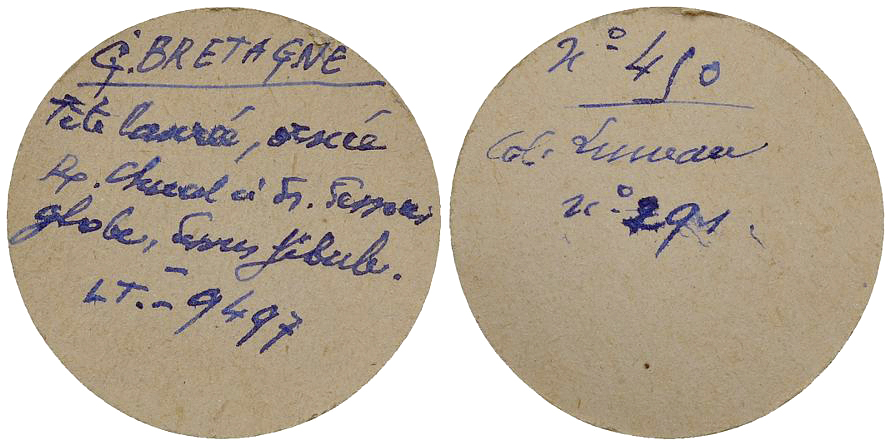 G. BRETAGNE
Tête laurée,
R/. Cheval à dr. Dessous
globe, dans fibule.
LT. – 9497
N° 450
Col. Luneau
n° 291.